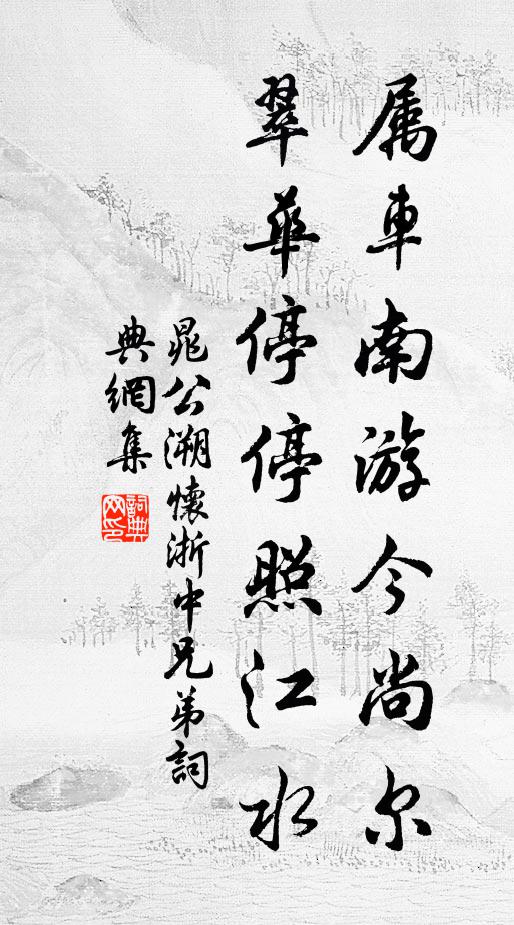 属車南游今尚尔
翠華停停照江水
晁公溯懷浙中兄弟詞
典網集
詞典网印